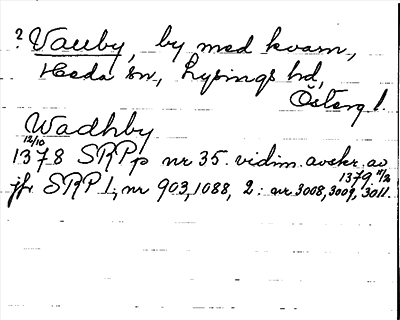 ? Vauby, by med kvarn,
Heda sn, Lysings hd,
Österg l.
Wadhby
12/10
1378 SRPp nr 35. vidim. avskr. av
1379 11/2
jfr SRP 1, nr 903, 1088, 2: nr 3008, 3009, 3011.